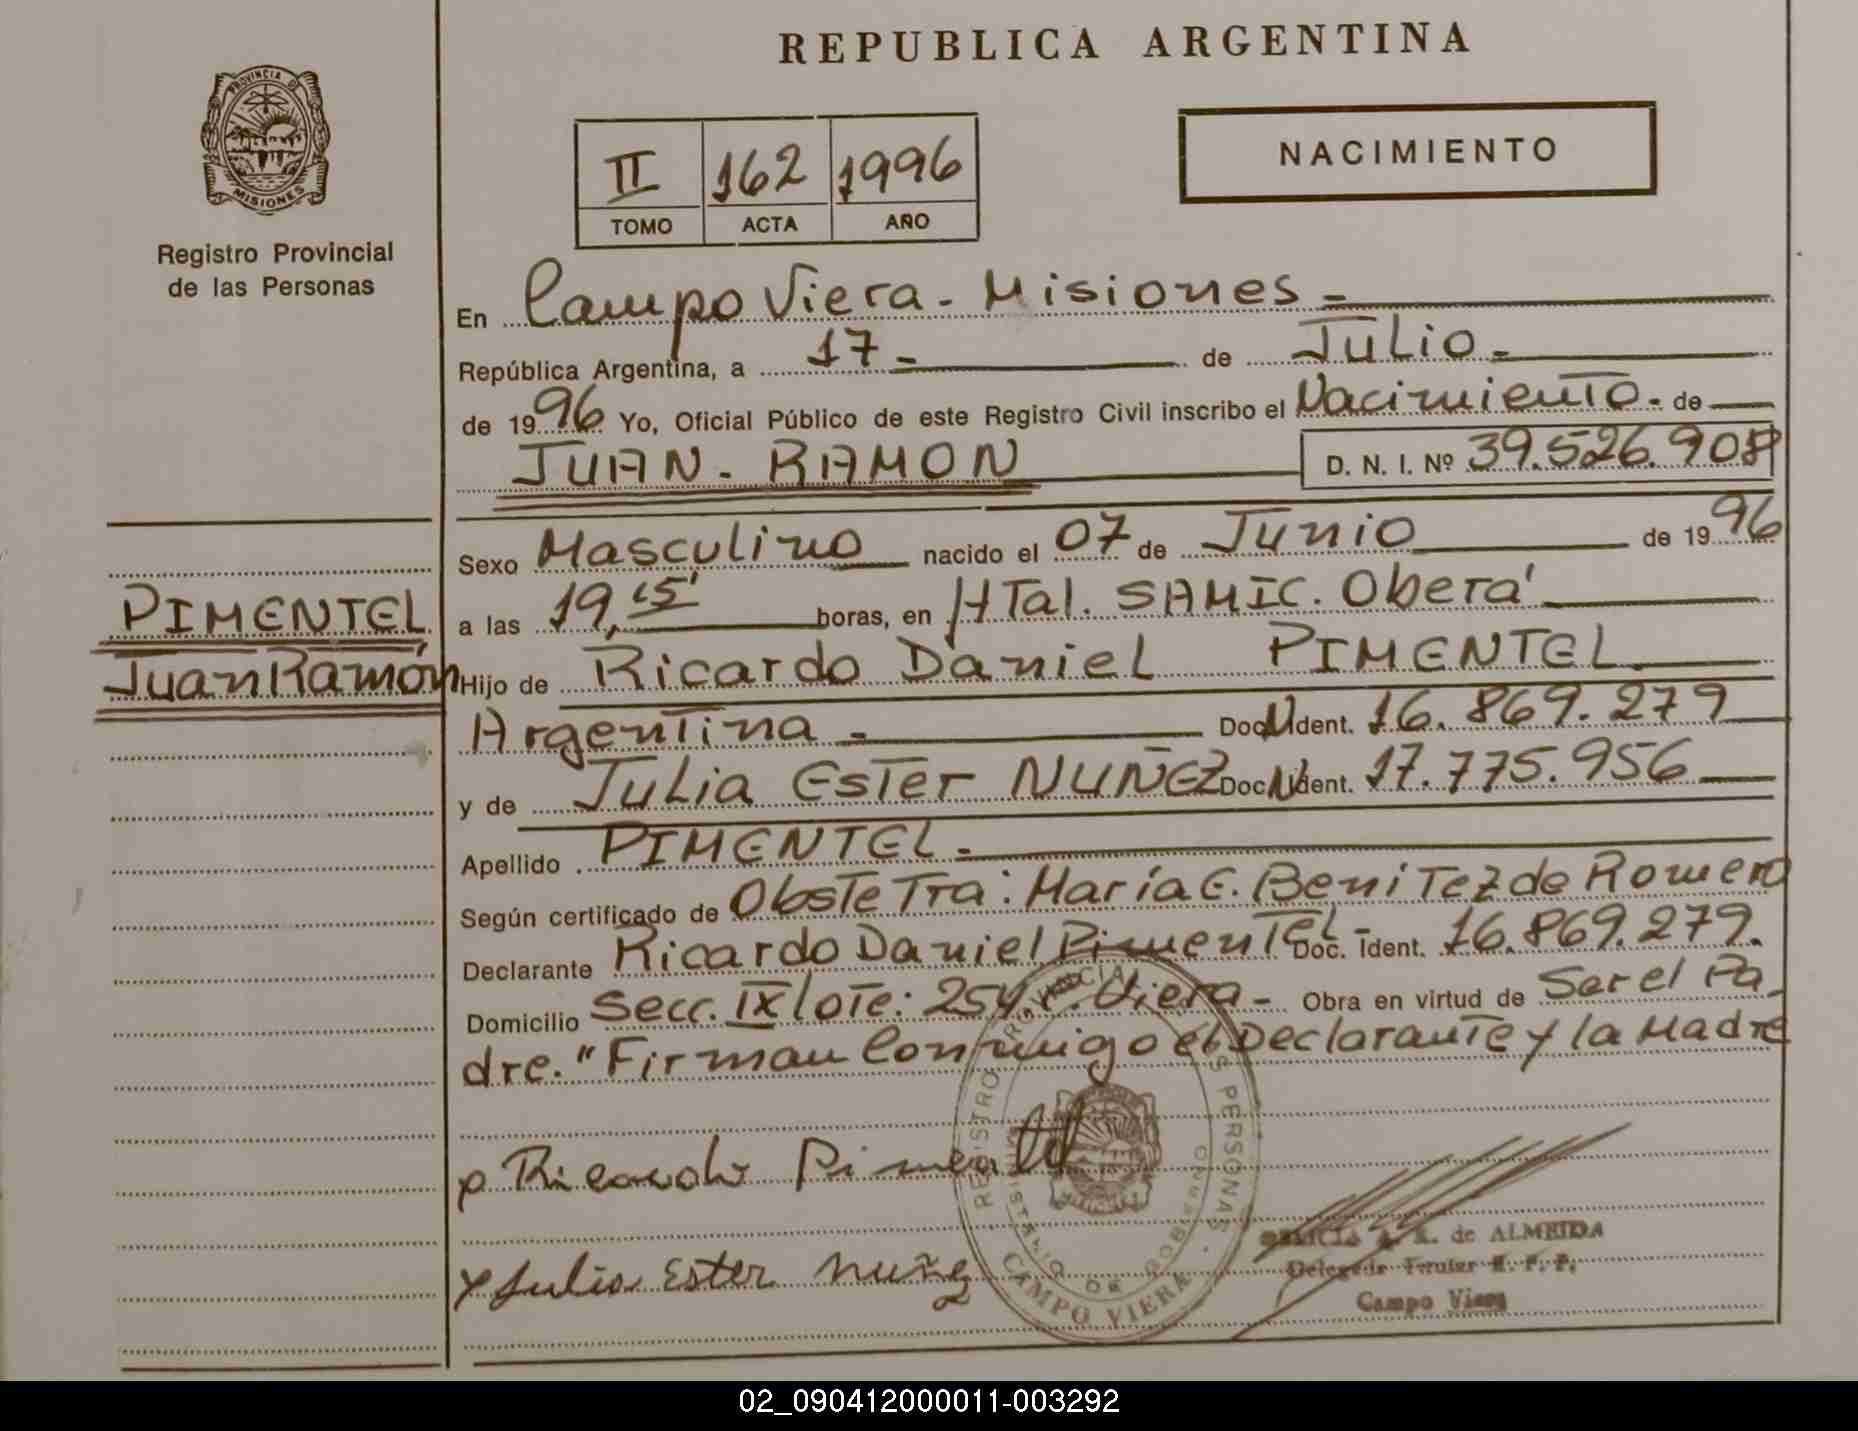 REPUBLICA ARGENTINA
PROVINCIA DE
MISIONES
Registro Provincial
de las Personas
II 162 1996
TOMO ACTA AÑO
NACIMIENTO
En Campo Viera - Misiones -
República Argentina, a 17 - de Julio -
de 1996 Yo, Oficial Público de este Registro Civil inscribo el Nacimiento - de
JUAN - RAMON D. N. I. Nº 39.526.908
Sexo Masculino nacido el 07 de Junio de 1996
PIMENTEL
Juan Ramón
a las 19,15' horas, en HTal. SAMIC. Oberá
Hijo de Ricardo Daniel PIMENTEL
Argentina - Doc. N Ident. 16.869.279
y de Julia Ester NUÑEZ Doc. N Ident. 17.775.956
Apellido PIMENTEL -
Según certificado de ObsteTra: María E. BeniTez de Romero
Declarante Ricardo Daniel Pimentel - Doc. Ident. 16.869.279.
Domicilio Secc. IX lote: 254 Viera - Obra en virtud de Ser el Pa-
dre. "Firman Conmigo el Declarante y la Madre
Ricardo Pimentel
Julia Ester Nuñez
REGISTRO PROVINCIAL PERSONAS
CAMPO VIERA
de ALMEIDA
Delegada Titular R. P. P.
Campo Viera
02_090412000011-003292